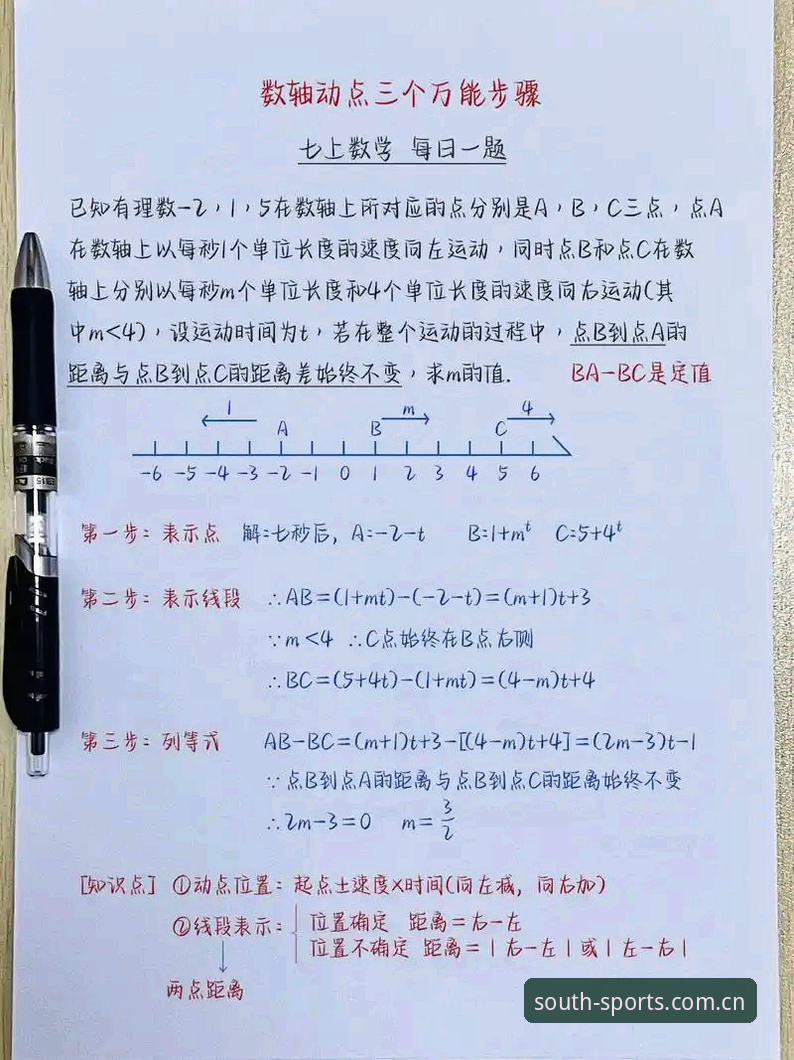 数轴动点三个万能步骤
七上数学 每日一题
已知有理数-2，1，5在数轴上所对应的点分别是A，B，C三点，点A
在数轴上以每秒1个单位长度的速度向左运动，同时点B和点C在数
轴上分别以每秒m个单位长度和4个单位长度的速度向右运动(其
中m<4)，设运动时间为t，若在整个运动的过程中，点B到点A的
距离与点B到点C的距离差始终不变，求m的值.
BA-BC是定值
1 m 4
A B C
-6 -5 -4 -3 -2 -1 0 1 2 3 4 5 6
第一步：表示点 解:七秒后，A:-2-t B:1+m^t C:5+4^t
第二步：表示线段 ∴AB=(1+mt)-(-2-t)=(m+1)t+3
∵m<4 ∴C点始终在B点右侧
∴BC=(5+4t)-(1+mt)=(4-m)t+4
第三步：列等式 AB-BC=(m+1)t+3-[(4-m)t+4]=(2m-3)t-1
∵点B到点A的距离与点B到点C的距离始终不变
∴2m-3=0 m=3/2
[知识点] ①动点位置：起点±速度×时间(向左减，向右加)
②线段表示：
位置确定 距离=右-左
位置不确定 距离=|右-左|或|左-右|
两点距离
south-sports.com.cn